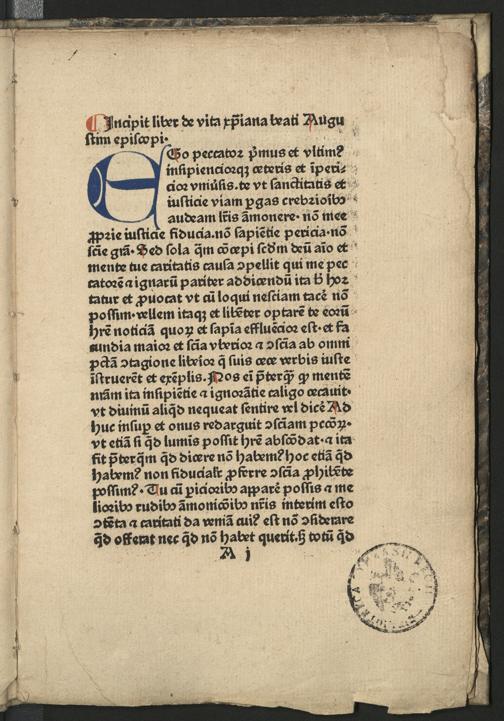 Incipit liber de vita xp̄iana beati Augu
stini episcopi·
EGo peccator p̄mus et vltimꝰ
insipienciorqꝫ ceteris et īperi-
cior vniūsis. te vt sanctitatis et
iusticie viam ꝑgas crebrioribꝰ
audeam lr̄is āmonere· nō mee
ꝓprie iusticie fiducia. nō sapiētie pericia· nō
sc̄ie grā· Sed sola qm̄ cōcepi scd̄m deū aīo et
mente tue caritatis causa ꝯpellit qui me pec
catorē ⁊ ignarū pariter addicendū ita ħ hor
tatur et ꝓuocat vt cū loqui nesciam tacē nō
possim· vellem itaqꝫ et libēter optarē te eorū
hr̄e noticiā quoꝝ et sapīa effluēcior est· et fa
cundia maior et scīa vberior ⁊ ꝯscīa ab omni
pctā ꝯtagione liberior q̄ suis ece verbis iuste
īstruerēt et exēplis. Nos ei p̄terqꝫ qꝫ mentē
nrām ita insipiētie ⁊ ignorātie caligo cecauit·
vt diuinū aliqd nequeat sentire vel dicē Ad
huc insuꝑ et onus redarguit ꝯsciam pccōꝝ·
vt etiā si qd lumis possit hr̄e abscōdat· ⁊ ita
fit p̄terqm̄ qd dicere nō habemꝰ hoc etiā qd
habemꝰ non fiducialr̄ ꝓferre ꝯscīa ꝓhibēte
possimꝰ· Tu cū ꝑicioribꝰ apparē possis ⁊ me
lioribꝰ rudibꝰ āmonicōibꝰ nr̄is interim esto
ꝯtēta ⁊ caritati da veniā cuiꝰ est nō ꝯsiderare
qd offerat nec qd nō habet querit. sꝫ totū qd
A j